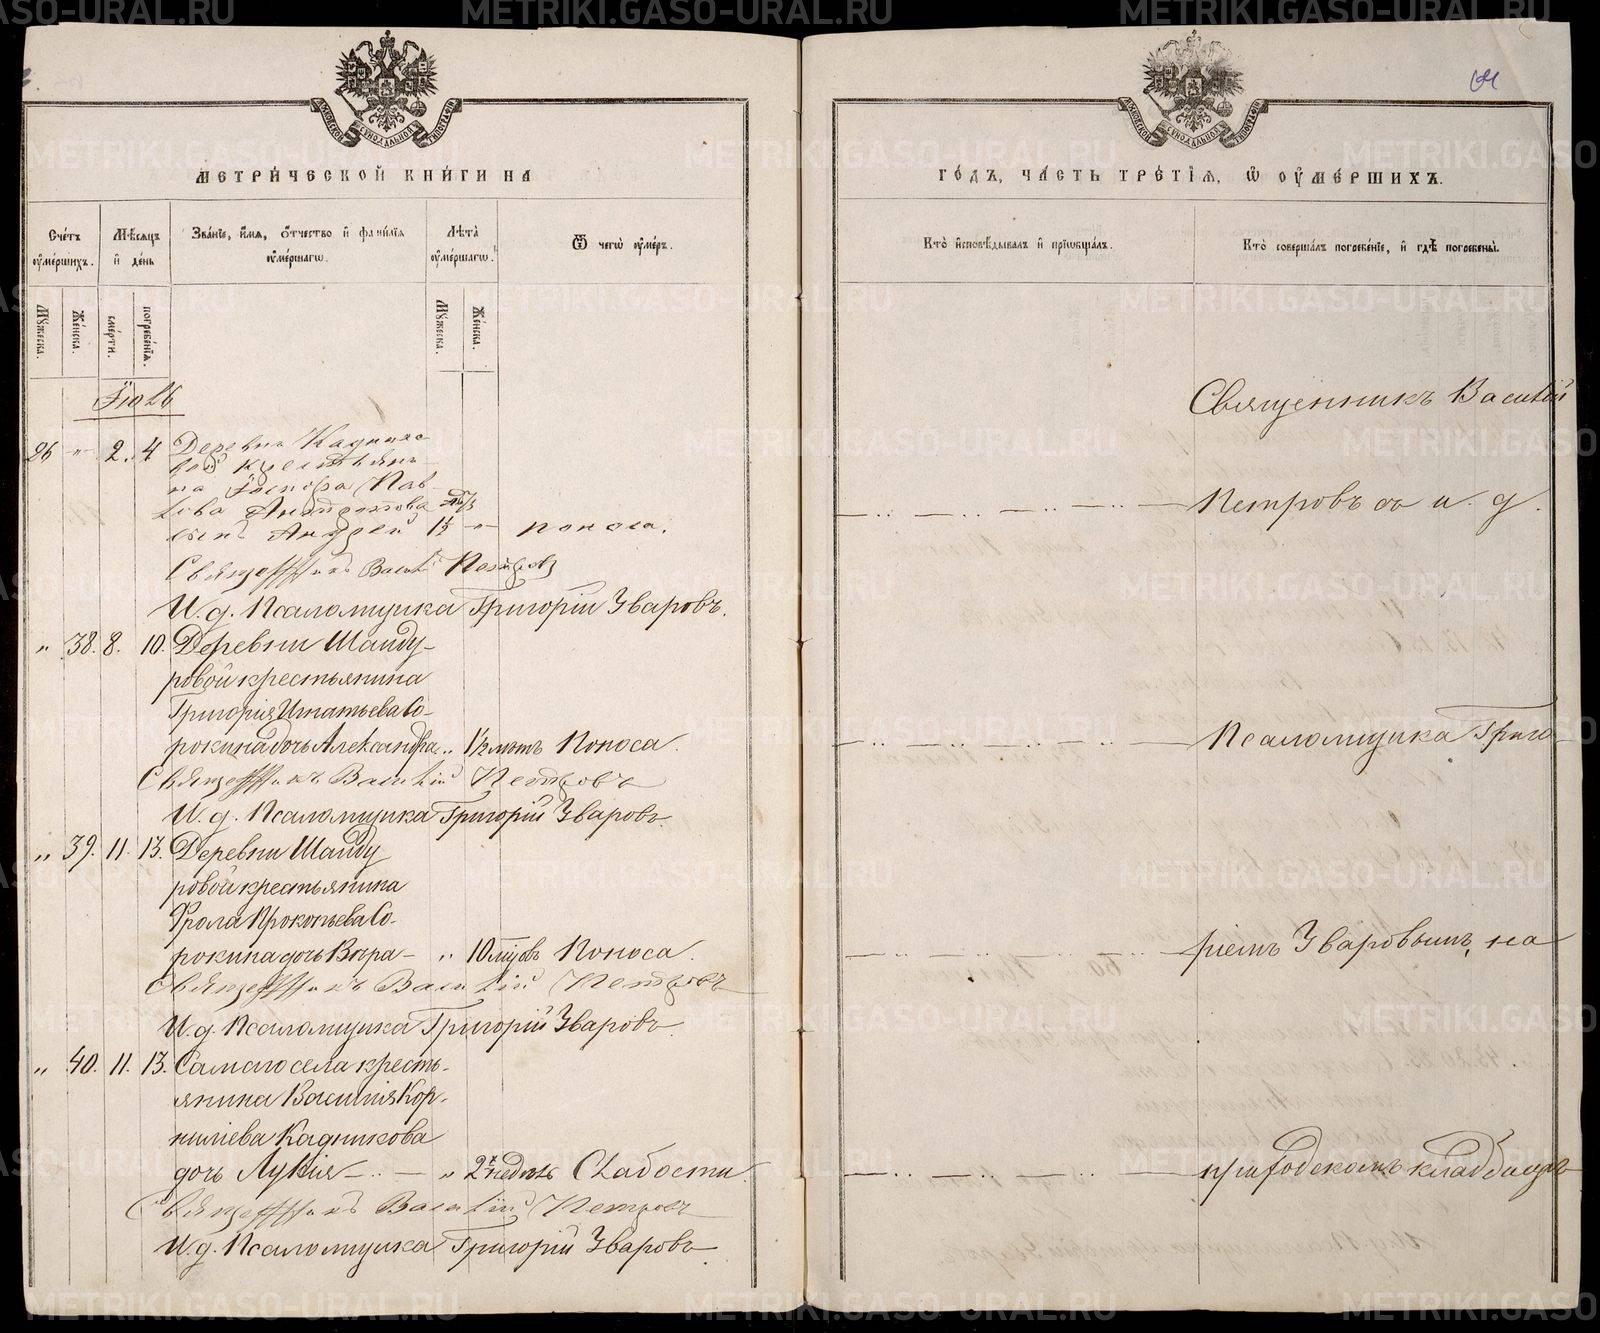 METRIKI.GASO-URAL.RU
МЕТРИ́ЧЕСКОЙ КНИ́ГИ НА
Счетъ оумершихъ.
Мѣсяцъ и день
Званіе, имя, отчество и фамилія оумершагѡ.
Лѣта оумершагѡ.
Ѿ чегѡ оумеръ.
Мужеска.
Женска.
смерти.
погребенія.
Мужеска.
Женска.
Іюль
26 " 2. 4 Деревни
крестьяни-
на Пав-
лова
сынъ Андрей 1½ " поноса.
Священникъ Василій Петровъ
И. д. Псаломщика Григорій Зваровъ.
" 38. 8. 10. Деревни Шайду-
ровой крестьянина
Григорія Игнатьева Со-
рокина дочь Александра " 1½ лѣтъ Поноса.
Священникъ Василій Петровъ
И. д. Псаломщика Григорій Зваровъ.
" 39. 11. 13. Деревни Шайду
ровой крестьянина
Фрола Прокопьева Со-
рокина дочь Вѣра " 10 мѣсѧцовъ Поноса.
Священникъ Василій Петровъ
И. д. Псаломщика Григорій Зваровъ.
" 40. 11. 13. Самаго села кресть-
янина Василія Кор-
нилiева Кадникова
дочь Лукія " 2х недѣль Слабости
Священникъ Василій Петровъ
И. д. Псаломщика Григорій Зваровъ.
ГО́ДЪ, ЧА́СТЬ ТРЕ́ТІѦ, Ѡ ОУМЕ́РШИХЪ.
Кто исповѣдывалъ и пріобщалъ.
Кто совершалъ погребеніе, и гдѣ погребены.
Священникъ Василій
Петровъ съ и. д.
Псаломщика Григо-
ріемъ Зваровымъ, на
приходскомъ кладбищѣ